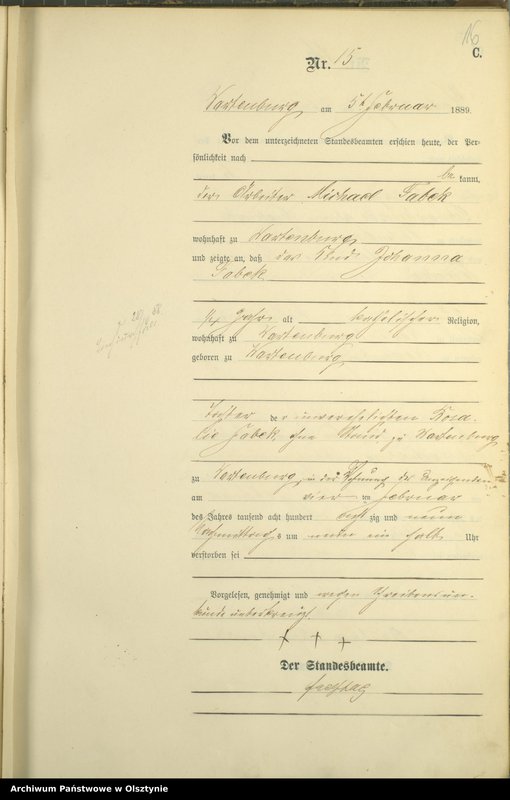 16
C.
Nr. 15
Wartenburg am 5t Februar 1889.
Vor dem unterzeichneten Standesbeamten erschien heute, der Per-
sönlichkeit nach
be kannt,
der Arbeiter Michael Fabek
wohnhaft zu Wartenburg
und zeigte an, daß das Kind Johanna
Fabek
Jahr alt katholischer Religion,
wohnhaft zu Wartenburg
geboren zu Wartenburg
Tochter der unverehelichten Rosa-
lie Fabek ohne Stand zu Wartenburg
zu Wartenburg in der Wohnung des Anzeigenden
am vier ten Februar
des Jahres tausend acht hundert acht zig und neun
Nachmittags um neun ein halb Uhr
verstorben sei
Vorgelesen, genehmigt und wegen Schreibensun-
kunde unterkreuzt.
+ + +
Der Standesbeamte.
Freytag
Archiwum Państwowe w Olsztynie